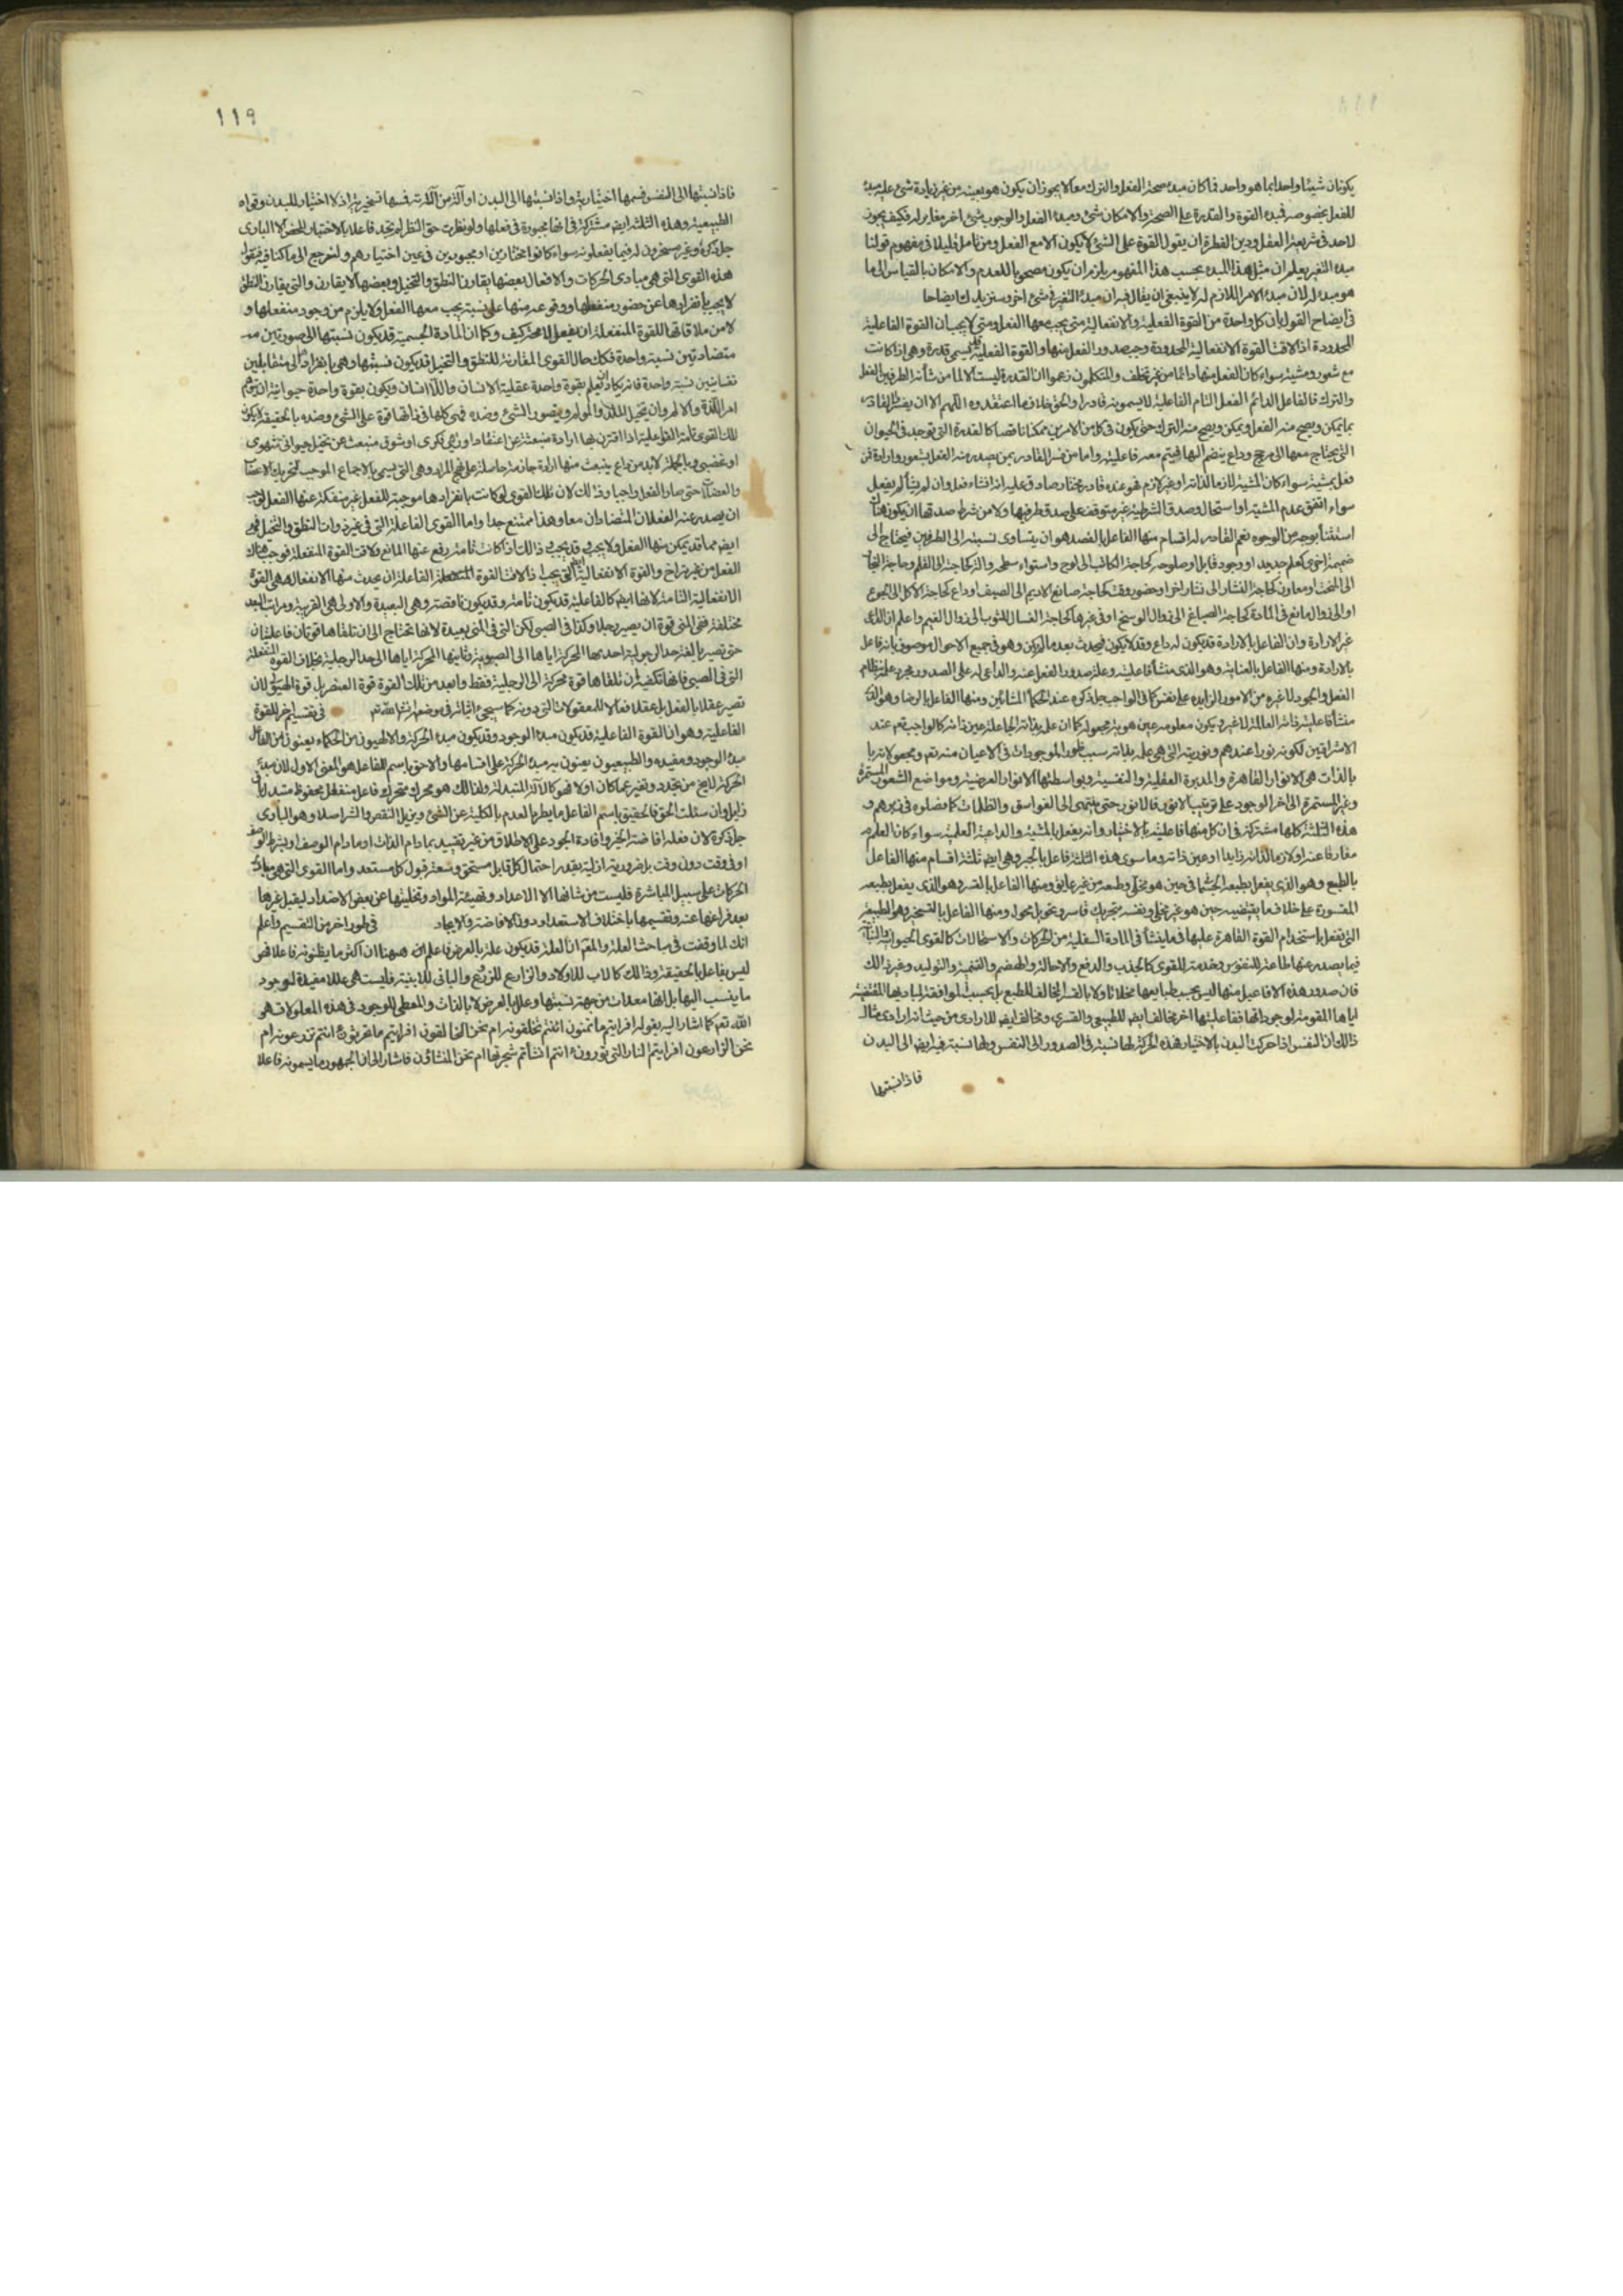 ١١٨
يكونان شيئا واحدا بما هو واحد فما كان مبدء صحة الفعل والترك معا لا يجوز ان يكون هو بعينه من غير زيادة شئ عليه مبدء
للفعل بخصوصه فمبدء القوة والقدرة على الصحة والامكان شئ ومبدء الفعل والوجوب شئ اخر مغاير له فكيف يجوز
لاحد فى شريعة العقل ودين الفطرة ان يقول القوة على الشئ لا يكون الا مع الفعل ومن تامل قليلا فى مفهوم قولنا
مبدء التغير يعلم ان مثل هذا المبدء بحسب هذا المفهوم يلزم ان يكون مصحوبا للعدم والامكان بالقياس الى ما
هو مبدء له لان مبدء الامر اللازم له لا ينبغى ان يقال فيه ان مبدء التغير فى شئ اخر وسنزيدك ايضاحا
فى ايضاح القول بان كل واحدة من القوة الفعلية والانفعالية متى يجب معها الفعل ومتى لا يجب ان القوة الفاعلية
المحدودة اذا لاقت القوة الانفعالية المحدودة وجب صدور الفعل منها والقوة الفعلية قد يسمى قدرة وهى اذا كانت
مع شعور ومشية سواء كان الفعل منها دائما من غير تخلف والمتكلمون زعموا ان القدرة ليست الا لما من شأنه الطرفين الفعل
والترك فالفاعل الدائم الفعل التام الفاعلية لا يسمونه قادرا والحق خلاف ما اعتقدوه اللهم الا ان يفسر القادر
بما يمكن ويصح منه الفعل ويمكن ويصح منه الترك حتى يكون فى كل من الامرين ممكنا ناقصا كالقدرة التى توجد فى الحيوان
التى يحتاج معها الى مرجح وداع ينضم اليها فيتم معه فاعليته واما من فسر القادر بمن يصدر منه الفعل بشعور وارادة فمن
فعل بمشية سواء كان المشية لازما لذاته او غير لازم فهو عنده قادر مختار صادق عليه انه ان شاء فعل وان لم يشأ لم يفعل
سواء اتفق عدم المشية او استحال وصدق الشرطية غير متوقف على صدق طرفيها ولا من شرط صدقها ان يكون هناك
استثناء بوجه من الوجوه نعم القادر له اقسام منها الفاعل بالقصد هو ان يتساوى نسبته الى الطرفين فيحتاج الى
ضميمة اخرى كعلم جديد او وجود قابل او صلوحه كحاجة الكاتب الى لوح واستواء سطحه والة كحاجته الى القلم وحاجة النجار
الى النحت ومعاون كحاجة النشار الى نشار اخر او حضور وقت كحاجة صانع الاديم الى الصيف او داع كحاجة الاكل الى الجوع
او الى زوال مانع فى المادة كحاجة الصباغ الى زوال الوسخ او فى غيرها كحاجة الغسال للثوب الى زوال الغيم واعلم ان الداعى
غير الارادة وان الفاعل بالارادة قد يكون له داع وقد لا يكون فيحدث بعد ما لم يكن وهو فى جميع الاحوال موصوف بانه فاعل
بالارادة ومنها الفاعل بالعناية وهو الذى منشأ فاعليته وعلة صدور الفعل عنه والداعى له على الصدور مجرد علمه بنظام
الفعل والجود لا غيره من الامور الزايدة على نفس كما فى الواجب جل ذكره عند الحكماء المشائين ومنها الفاعل بالرضا وهو الذى
منشأ فاعليته ذاته العالمة لا غير ويكون معلومه عين هوية مجعوله كما ان علمه بذاته الجاعلة عين ذاته كالواجب تعم عند
الاشراقيين لكونه نورا عندهم ونوريته التى هى علمه بذاته سبب ظهور الموجودات فى الاعيان منه تعم ومجعولاته بما
بالذات هى الانوار القاهرة والمدبرة العقلية والنفسية وبواسطتها الانوار العرضية ومواضع الشعور المستمرة
وغير المستمرة الى اخر الوجود على ترتيب الانور فالانور حتى ينتهى الى الغواسق والظلمات كما فصلوه فى زبرهم و
هذه الثلثة كلها مشتركة فى ان كل منها فاعليته بالاختيار وانه يفعل بالمشية والداعية العلمية سواء كان العلم
مفارقا عنه او لازما لذاته زايدا او عين ذاته وما سوى هذه الثلثة فاعل بالجبر وهى ايض ثلثة اقسام منها الفاعل
بالطبع وهو الذى يفعل بطبعه الجسمانى حين هو مخلى وطبعه من غير عايق ومنها الفاعل بالقسر وهو الذى يفعل بطبعه
المقسورة على خلاف ما يقتضيه حين هو غير مخلى ونفسه بتحريك قاسر وتحويل محول ومنها الفاعل بالتسخير وهو الطبيعة
التى تفعل باستخدام القوة القاهرة عليها فيما ينشأ فى المادة السفلية من الحركات والاستحالات كالقوى الحيوانية والنباتية
فيما يصدر عنها طاعة للنفوس وخدمة للقوى كالجذب والدفع والاحالة والهضم والتنمية والتوليد وغير ذالك
فان صدور هذه الافاعيل منها ليس بحسب طبايعها مخلاة ولا بالقسر المخالف للطبع بل بحسب الموافقة لمباديها المقتضية
اياها المقومة لوجوداتها ففاعليتها اخر مخالف ايض للطبيعى والقسرى ومخالف ايض للارادى من حيث انه ارادى مثال
ذالك ان النفس اذا حركت البدن بالاختيار فهذه الحركة لها نسبة فى الصدور الى النفس ولها نسبة فيه ايض الى البدن
فاذا نسبتها
١١٩
فاذا نسبتها الى النفس فسمها اختيارية واذا نسبتها الى البدن او آلة من آلاته فسمها تسخيرية اذ لا اختيار للبدن وقواه
الطبيعية وهذه الثلثة ايض مشتركة فى انها مجبورة فى فعلها ولو نظرت حق النظر لم تجد فاعلا بالاختيار المحض الا البارى
جل ذكره وغيره مسخرون له فيما يفعلونه سواء كانوا مختارين او مجبورين فى عين اختيارهم ولنرجع الى ما كنا فيه فنقول
هذه القوى التى هى مبادى الحركات والافعال بعضها يقارن النطق والتخيل وبعضها لا يقارن والتى يقارن النطق
لا يجب بانفرادها عن حضور منفعلها ووقوعه منها على نسبة يجب معها الفعل ولا يلزم من وجود منفعلها و
لا من ملاقاتها للقوة المنفعلة ان يفعل لا محة كيف وكما ان المادة الجسمية قد يكون نسبتها الى صورتين
متضادتين نسبة واحدة فكك حال القوى المقارنة للنطق والتخيل قد يكون نسبتها وهى بانفرادها الى متقابلين
نفسانيين نسبة واحدة فانه يكاد ان يعلم بقوة واحدة عقلية الانسان واللاانسان ويكون بقوة واحدة حيوانية ان يتوهم
امر اللذة والالم وان يتخيل الملذ والمولم ويتصور الشئ وضده فهى كلها فى ذاتها قوة على الشئ وضده بالحقيقة لا يكون
تلك القوى تامة الفاعلية الا اذا اقترن بها ارادة منبعثة عن اعتقاد او وهمى فكرى او شوق منبعث عن تخيل حيوانى شهوى
او غضبى وبالجملة لابد من داع ينبعث منها ارادة جازمة حاصلة على نهج المراد وهى التى يسمى بالاجماع الموجب لتحريك الاعضاء
والعضلات حتى صار الفعل واجبا وذلك لان تلك القوى لو كانت بانفرادها موجبة للفعل غير منفكة عنها الفعل لوجب
ان يصدر عنه الفعلان المتضادان معا وهذا ممتنع جدا واما القوى الفاعلة التى فى غير ذوات النطق والتخيل فهى
ايض مما قد يمكن منها الفعل ولا يجب وقد يجب وذالك اذا كانت تامة ورفع عنها المانع ولاقت القوة المنفعلة فوجب هناك
الفعل من غير تراخ والقوة الانفعالية ايض التى يجب اذا لاقت القوة الفاعلة ان يحدث منها الانفعال هى القوة
الانفعالية التامة لانها ايض كالفاعلية قد يكون تامة وقد يكون ناقصة وهى البعيدة والاولى هى القريبة ومراتب البعد
مختلفة ففى المنى قوة ان يصير رجلا وكذا فى الصبى لكن التى فى المنى بعيدة لانها تحتاج الى ان تلقاها قوتان فاعليتان
حتى تصير بالغة حد الرجولية احديهما المحركة اياها الى الصبوية وثانيها المحركة اياها الى حد الرجلية بخلاف القوة المنفعلة
التى فى الصبى فانها تكفيه ان تلقاها قوة محركة الى الرجلية فقط وابعد من تلك القوة قوة العنصر بل قوة الهيولى لان
تصير عقلا بالفعل بل عقلا فعالا للمعقولات التى دونه كما سيجئ اثباته فى موضعه انشاء الله تعم فى تقسيم اخر للقوة
الفاعلية وهو ان القوة الفاعلية قد يكون مبدء الوجود وقد يكون مبدء الحركة والالهيون من الحكماء يعنون من الفاعل
مبدء الوجود ومفيده والطبيعيون يعنون به مبدء الحركة على اقسامها والاحق باسم الفاعل هو المعنى الاول لان مبدء
الحركة لا يخ من تجدد وتغير عما كان اولا فهو كالالة المتبدلة ولذالك هو محرك متحرك فاعل منفعل محفوظ متبدل باق
زايل وان سئلت الحق فالحقيق باسم الفاعل ما يطرد العدم بالكلية عن الشئ ويزيل النقص والشر اصلا وهو البارى
جل ذكره لان فعله افاضة الخير وافادة الجود على الاطلاق من غير تقييد بمادام الذات او مادام الوصف او بشرط الوصف
او فى وقت دون وقت بل ضرورية ازلية بقدر احتمال كل قابل مستحق وسعة قبول كل مستعد واما القوى التى هى مبادى
الحركات على سبيل المباشرة فليست من شانها الا الاعداد وتهيئة المواد وتخليتها عن بعض الاضداد ليقبل غيرها
بعد فراغها عنه وتقسيمها باختلاف الاستعداد دون الافاضة والايجاد فى طور اخر من التقسيم واعلم
انك لما وقفت فى مباحث العلة والمعلول ان العلة قد يكون علة بالعرض فاعلم الان هيهنا ان اكثر ما يظنونه فاعلا فهو
ليس بفاعل بالحقيقة وذالك كالاب للاولاد والزارع للزرع والبانى للابنية فليست هى عللا مفيدة لوجود
ما ينسب اليها بل انها معدات من جهة نسبتها وعلل بالعرض لا بالذات والمعطى للوجود فى هذه المعلولات هو
الله تعم كما اشار اليه بقوله افرايتم ما تمنون ائنتم تخلقونه ام نحن الخالقون افرايتم ما تحرثون ءانتم تزرعونه ام
نحن الزارعون افرايتم النار التى تورون ءانتم انشأتم شجرتها ام نحن المنشؤن فاشار الى ان الجمهور ما يسمونه فاعلا